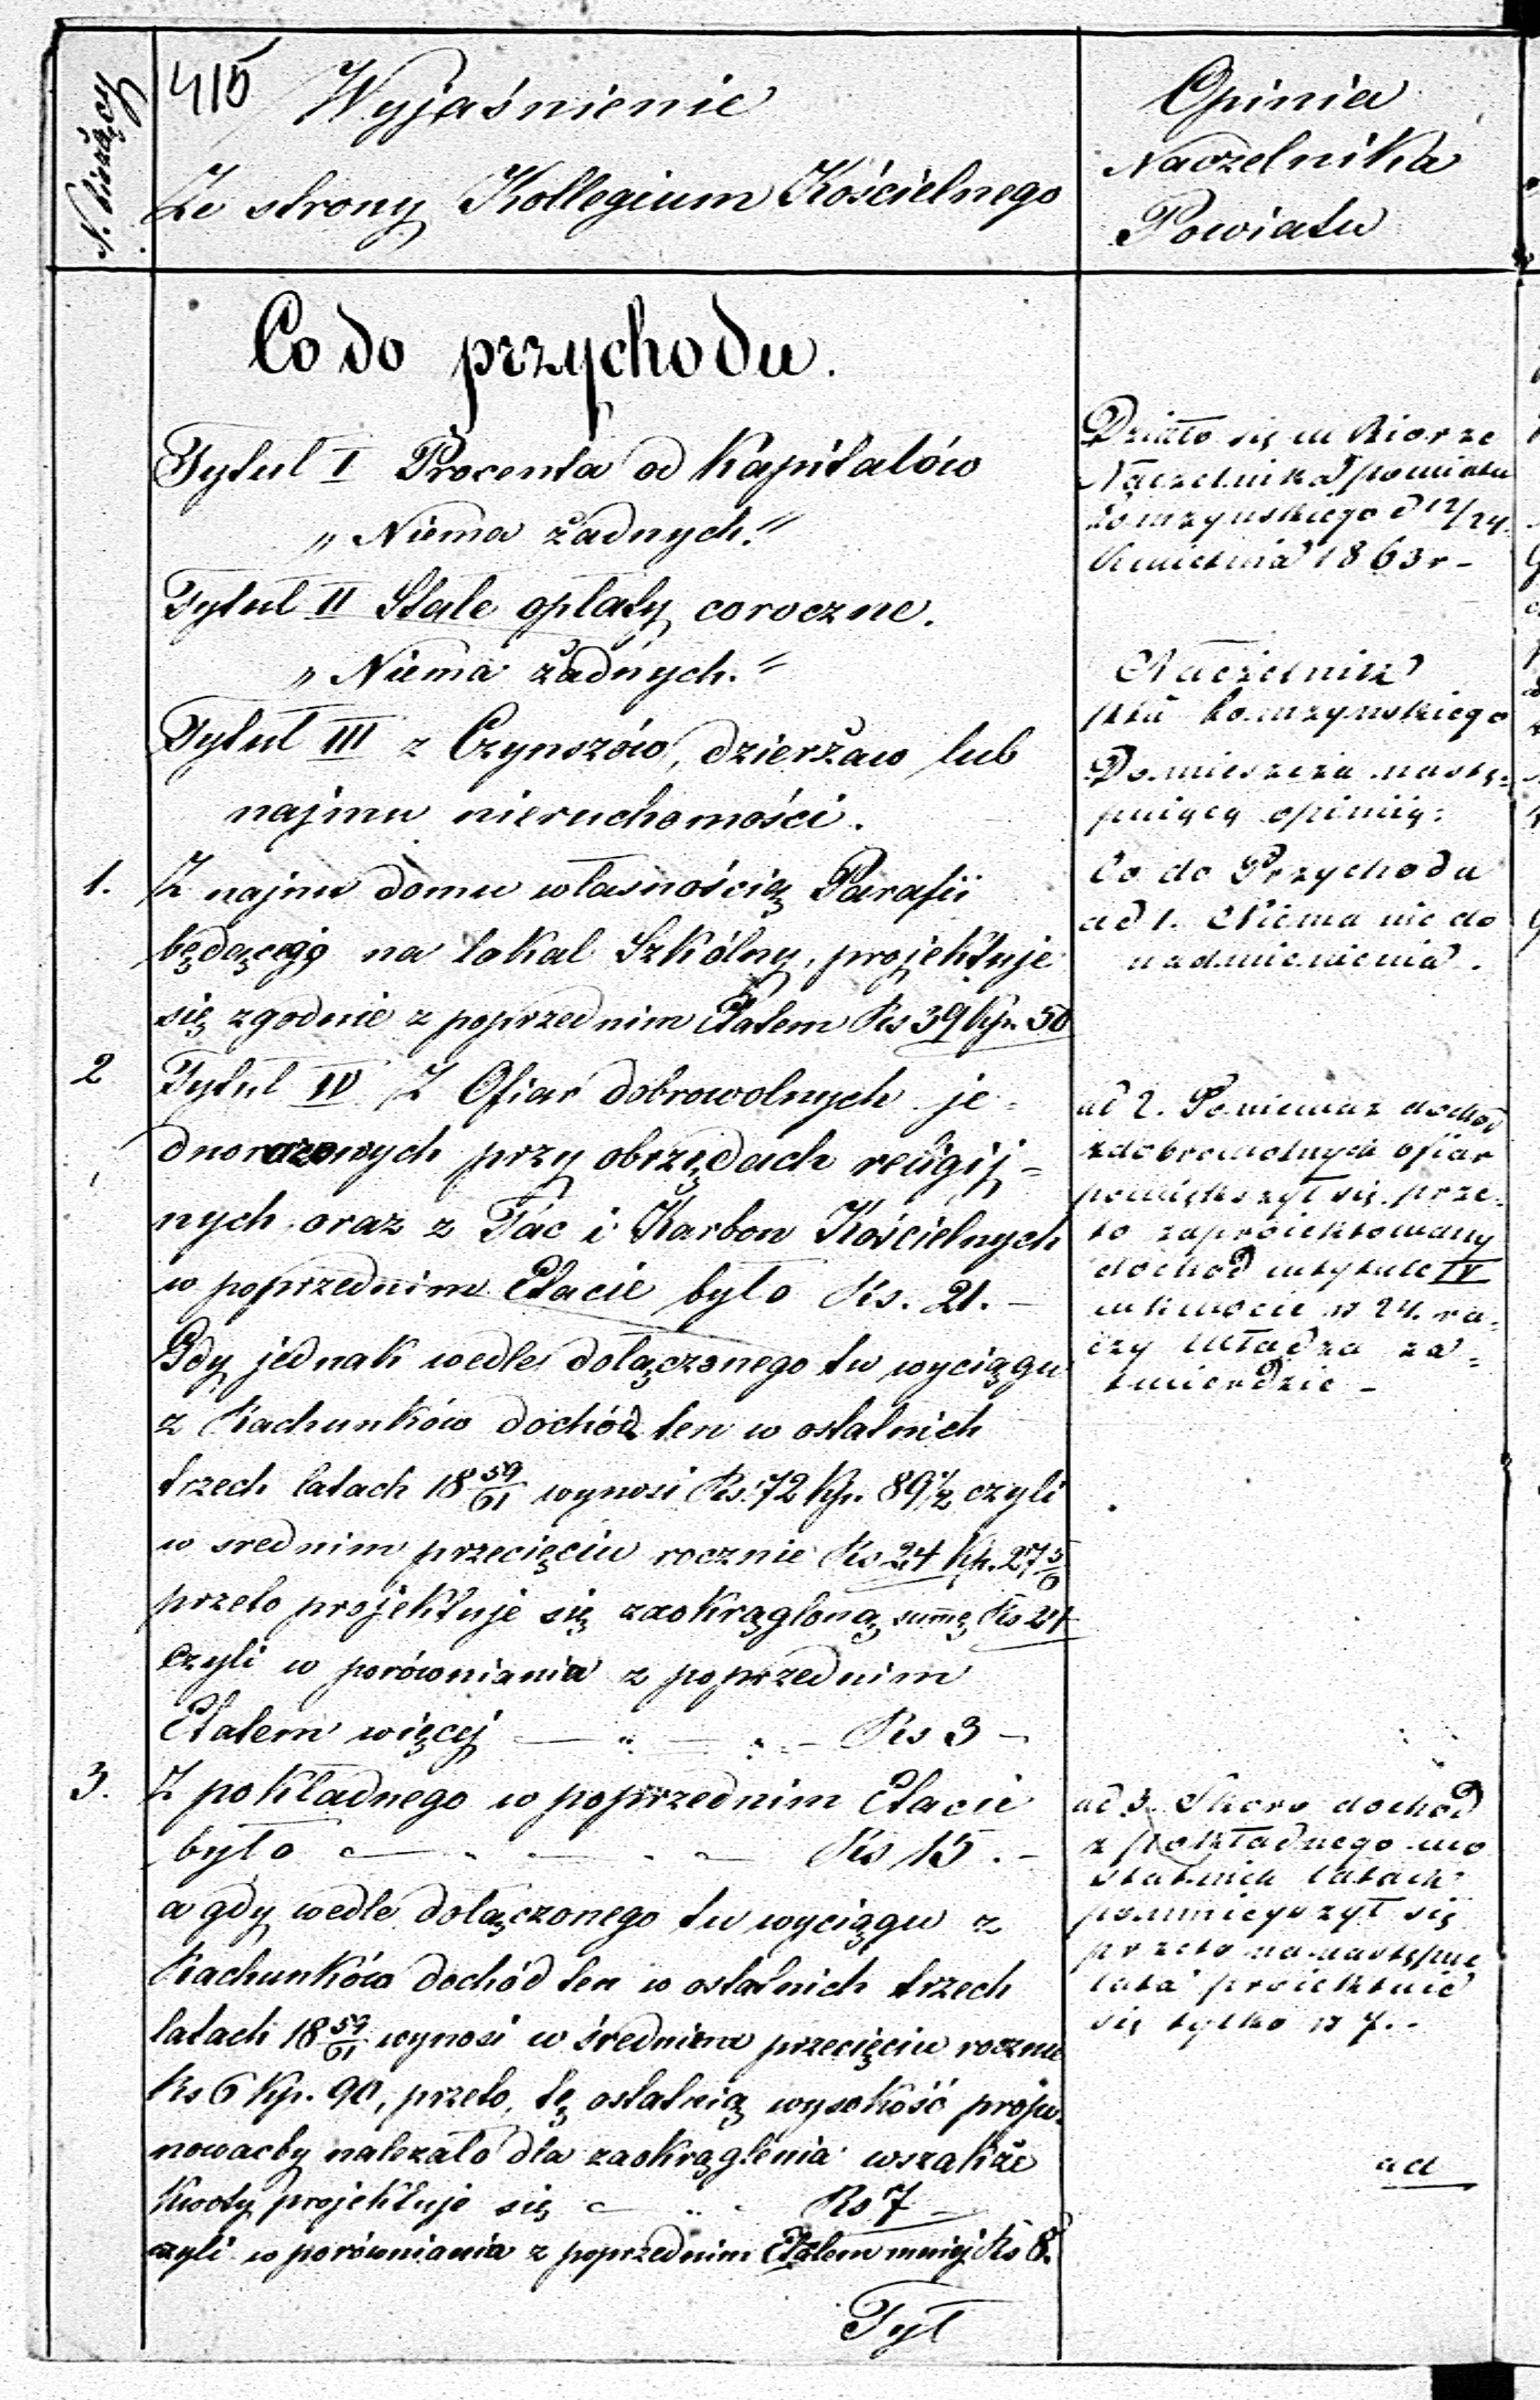 N. bieżący
415
Wyjaśnienie
Ze strony Kollegium Kościelnego
Opinia
Naczelnika
Powiatu
Co do przychodu.
Tytuł I Procenta od Kapitałów
„Niema żadnych.“
Tytuł II Stałe opłaty coroczne.
„Niema żadnych.“
Tytuł III z Czynszów, dzierżaw lub
najmu nieruchomości.
1. Z najmu domu własnością Parafii
będącego na lokal Szkólny, projektuje
się zgodnie z poprzednim Etatem Rs 39 Kp. 50
2 Tytuł IV Z Ofiar dobrowolnych je=
dnorazowych przy obrzędach religij=
nych oraz z Tac i Karbon Kościelnych
w poprzednim Etacie było Rs. 21. –
Gdy jednak wedle dołączonego tu wyciągu
z Rachunków dochód ten w ostatnich
trzech latach 18 59/61 wynosi Rs. 72 Kp. 89 1/2 czyli
w srednim przecięciu rocznie Rs 24 Kp. 27 5/6
przeto projektuje się zaokrągloną summę Rs 24
czyli w porównania z poprzednim
Etatem więcej — „ — „ — Rs 3 –
3. Z pokładnego w poprzednim Etacie
było — „ — „ — Rs 15. –
a gdy wedle dołączonego tu wyciągu z
Rachunków dochód ten w ostatnich trzech
latach 18 59/61 wynosi w średniem przecięciu rocznie
Rs 6 Kp. 90, przeto, tę ostatnią wysokość propo=
nowacby należało dla zaokrąglenia wszakże
Kwoty projektuje się — „ Rs 7 –
czyli w porównania z poprzednim Etatem mniej Rs 8.
Tył
Działo się w Biorze
Naczelnika powiatu
Łomżynskiego d 12/24
Kwietnia 1863 r –
Naczelnik
ptu Łomżynskiego
Domieszcza nastę=
pującą opinią:
Co do Przychodu
ad 1. Niema nic do
nadmienienia.
ad 2. Ponieważ dochód
z dobrowolnych ofiar
powiększył się prze=
to zaproiektowany
dochód w tytule IV
w kwocie rs 24. ra=
czy Władza za=
twierdzic –
ad 3. Skoro dochód
z pokładnego w o
statnich latach
pomnieyszył się
przeto na następne
lata proiektuie
się tylko rs 7. –
ad